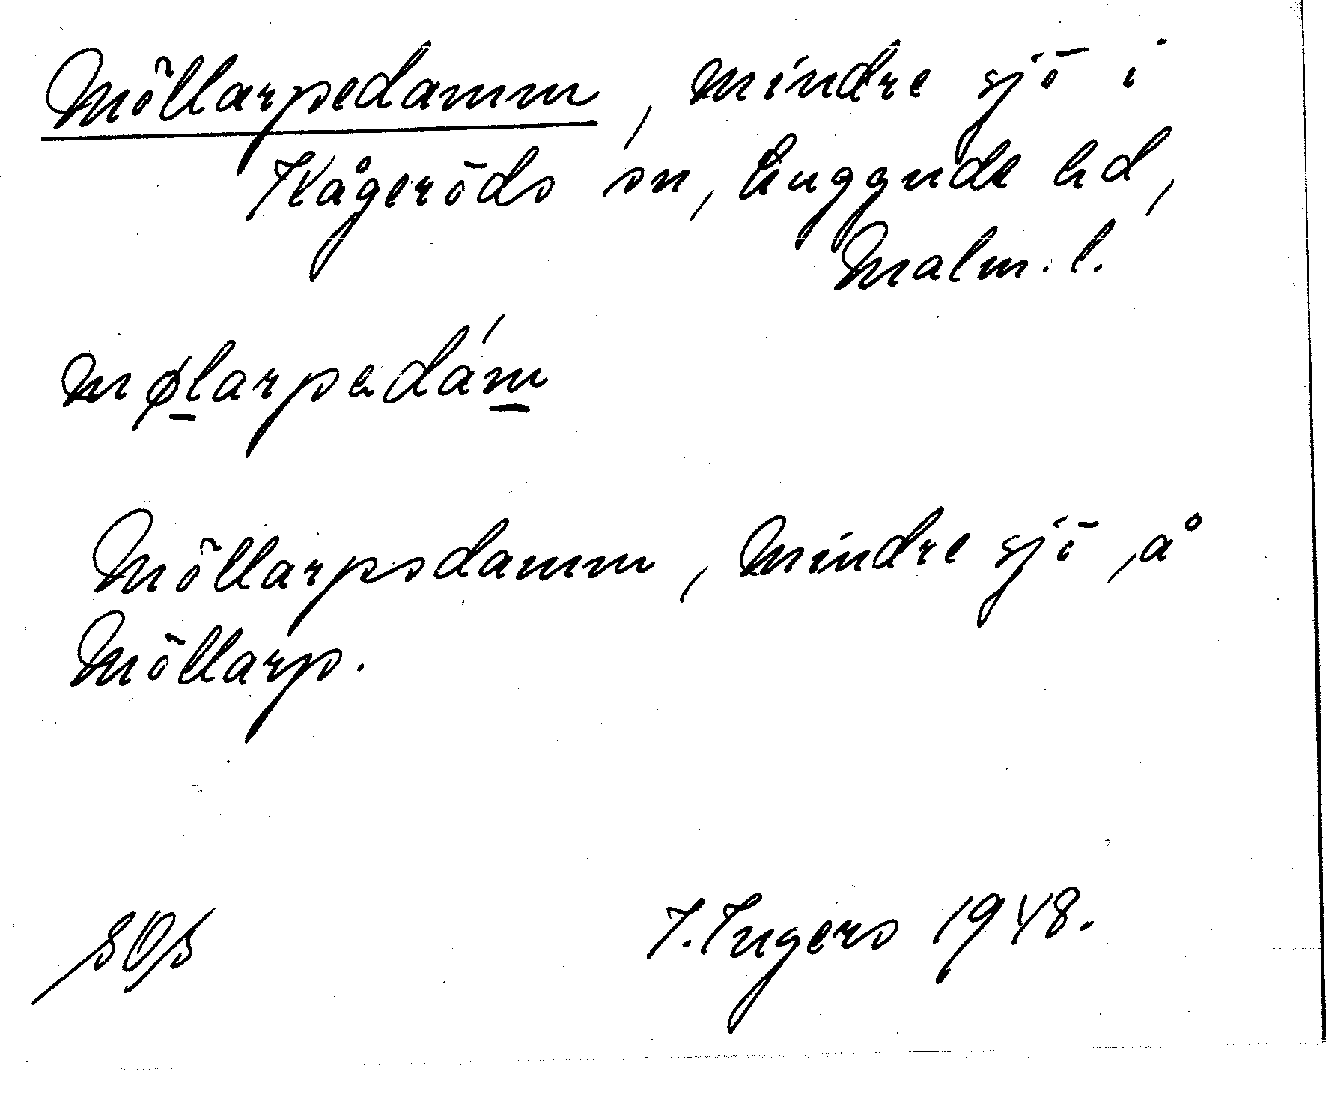 Möllarpedamm, mindre sjö i
Kågeröds sn, Luggude hd,
Malm. l.
mølarpədám
Möllarpsdamm, mindre sjö, å
Möllarp.
SOS I. Ingers 1948.